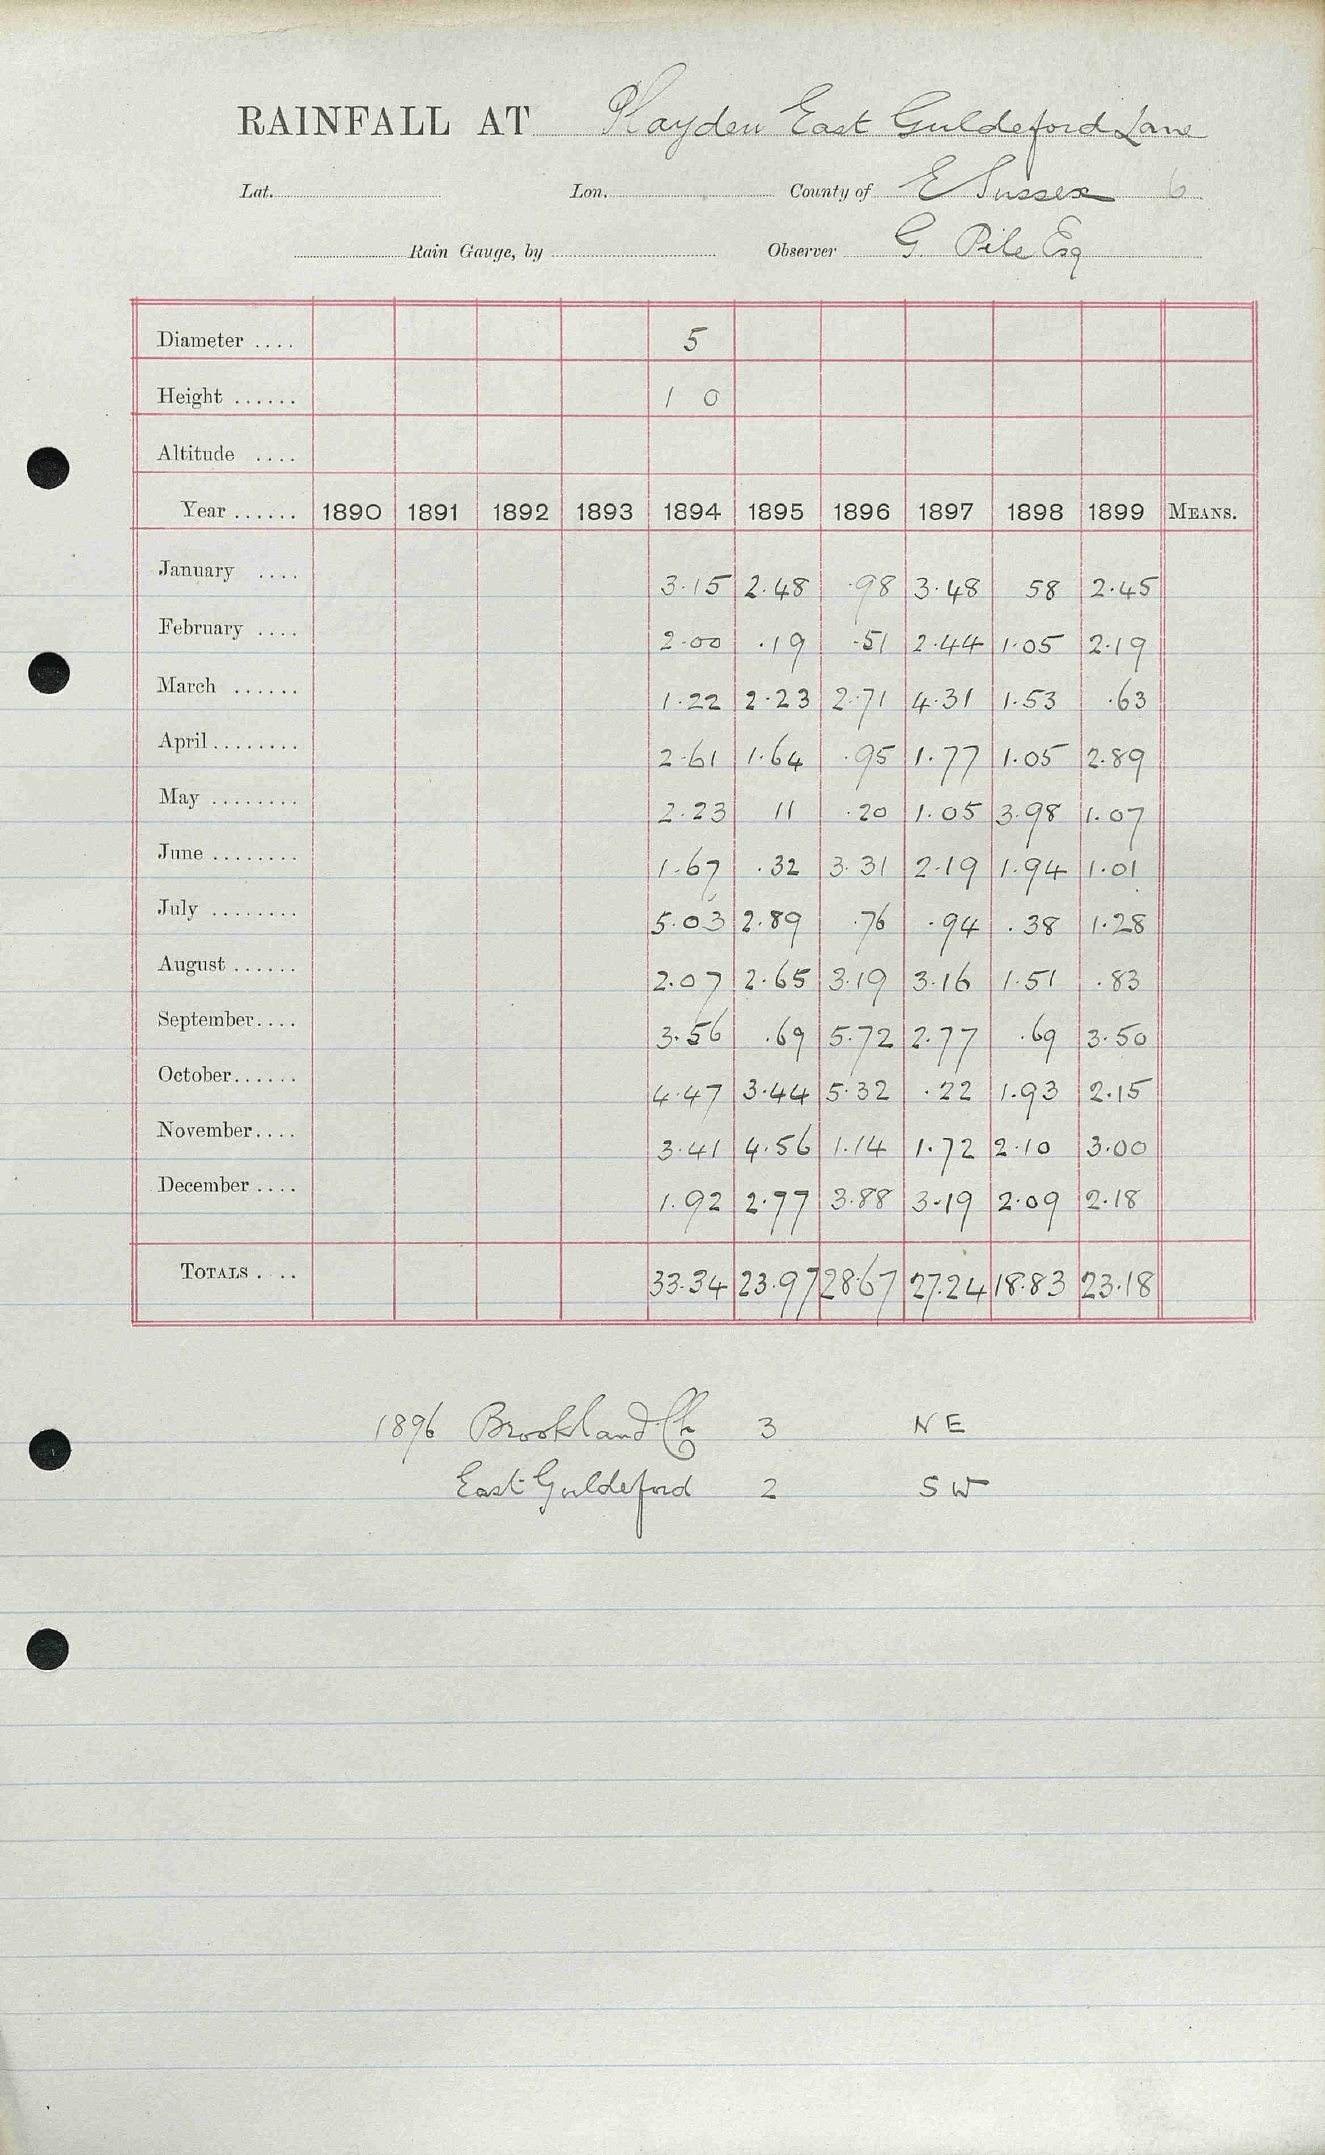 RAINFALL AT Playden East Guldeford Lane
Lat. Lon. County of E Sussex 6
Rain Gauge, by Observer G. Pile Esq
Diameter .... 5
Height ...... 1 0
Altitude ....
Year ...... 1890 1891 1892 1893 1894 1895 1896 1897 1898 1899 MEANS.
January .... 3.15 2.48 .98 3.48 58 2.45
February .... 2.00 .19 .51 2.44 1.05 2.19
March ...... 1.22 2.23 2.71 4.31 1.53 .63
April ........ 2.61 1.64 .95 1.77 1.05 2.89
May ........ 2.23 11 .20 1.05 3.98 1.07
June ........ 1.67 .32 3.31 2.19 1.94 1.01
July ........ 5.03 2.89 .76 .94 .38 1.28
August ...... 2.07 2.65 3.19 3.16 1.51 .83
September.... 3.56 .69 5.72 2.77 .69 3.50
October...... 4.47 3.44 5.32 .22 1.93 2.15
November.... 3.41 4.56 1.14 1.72 2.10 3.00
December .... 1.92 2.77 3.88 3.19 2.09 2.18
TOTALS .... 33.34 23.97 28.67 27.24 18.83 23.18
1896 Brookland Ch 3 NE
East Guldeford 2 SW